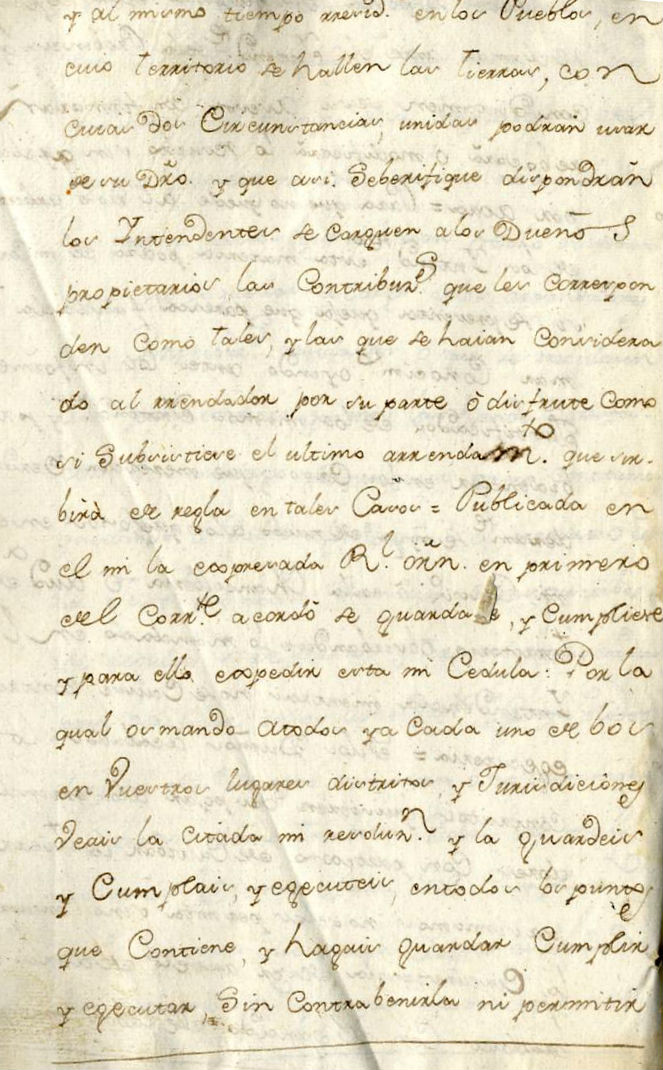 y al mismo tiempo rresid. en los Pueblos, en
cuio territorio se hallen las tierras, con
cuias dos Circunstancias, unidas podran usar
de su Dr̃o. y que asi Seberifique dispondrañ
los Yntendentes se carguen alos Dueños
propietarios, las Contribur.s que les correspon
den como tales, y las que se haian Considera
do al rrendador por su parte ô disfrute como
si Subsistiese el ultimo arrendam.to que sir-
birà de regla en tales Casos = Publicada en
el mi la expresada R.l orñ. en primero
del Corr.te acordò se guardase, y Cumpliese
y para ello expedir esta mi Cedula: Por la
qual os mando atodos y a Cada uno de bos
en Vuestros lugares distritos, y Jurisdiciones
Veais la citada mi resolun.n y la guardeis
y Cumplais, y egecuteis, entodos los puntos
que Contiene, y hagais guardar Cumplir
y egecutar, Sin Contrabenirla ni permitir